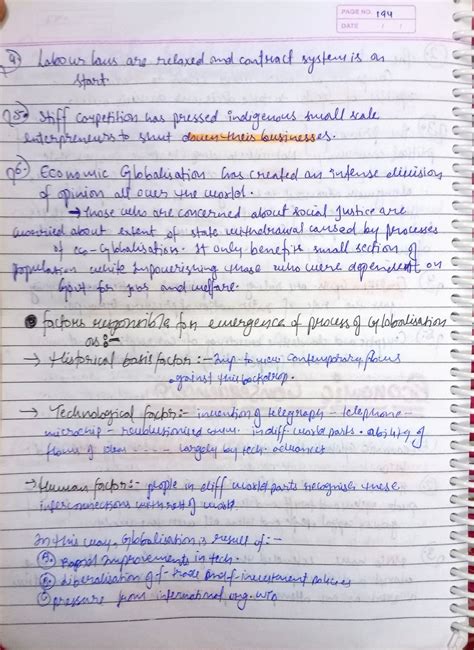 PAGE NO. 144
DATE / /
4) Labour laws are relaxed and contract system is on
start
5) Stiff competition has pressed indigenous small scale
enterpreneurs to shut down their businesses.
6) Economic Globalisation has created an intense division
of opinion all over the world.
→ those who are concerned about social justice are
worried about extent of state withdrawal caused by processes
of eco-globalisation. It only benefits small section of
population while impoverishing those who were dependent on
Govt. for jobs and welfare.
factors responsible for emergence of process of Globalisation
as :-
→ Historical basis factor :- Imp to view contemporary flows
against this backdrop.
→ Technological factor :- invention of telegraph - telephone -
microchip - revolutionised comm. in diff. world parts. ability of
flows of ideas ..... largely by tech. advances
→ Human factor :- people in diff world parts recognise these
interconnections with rest of world.
In this way, Globalisation is result of :-
rapid improvements in tech.
liberalisation of f-trade and f-investment policies
pressure from international org. WTO